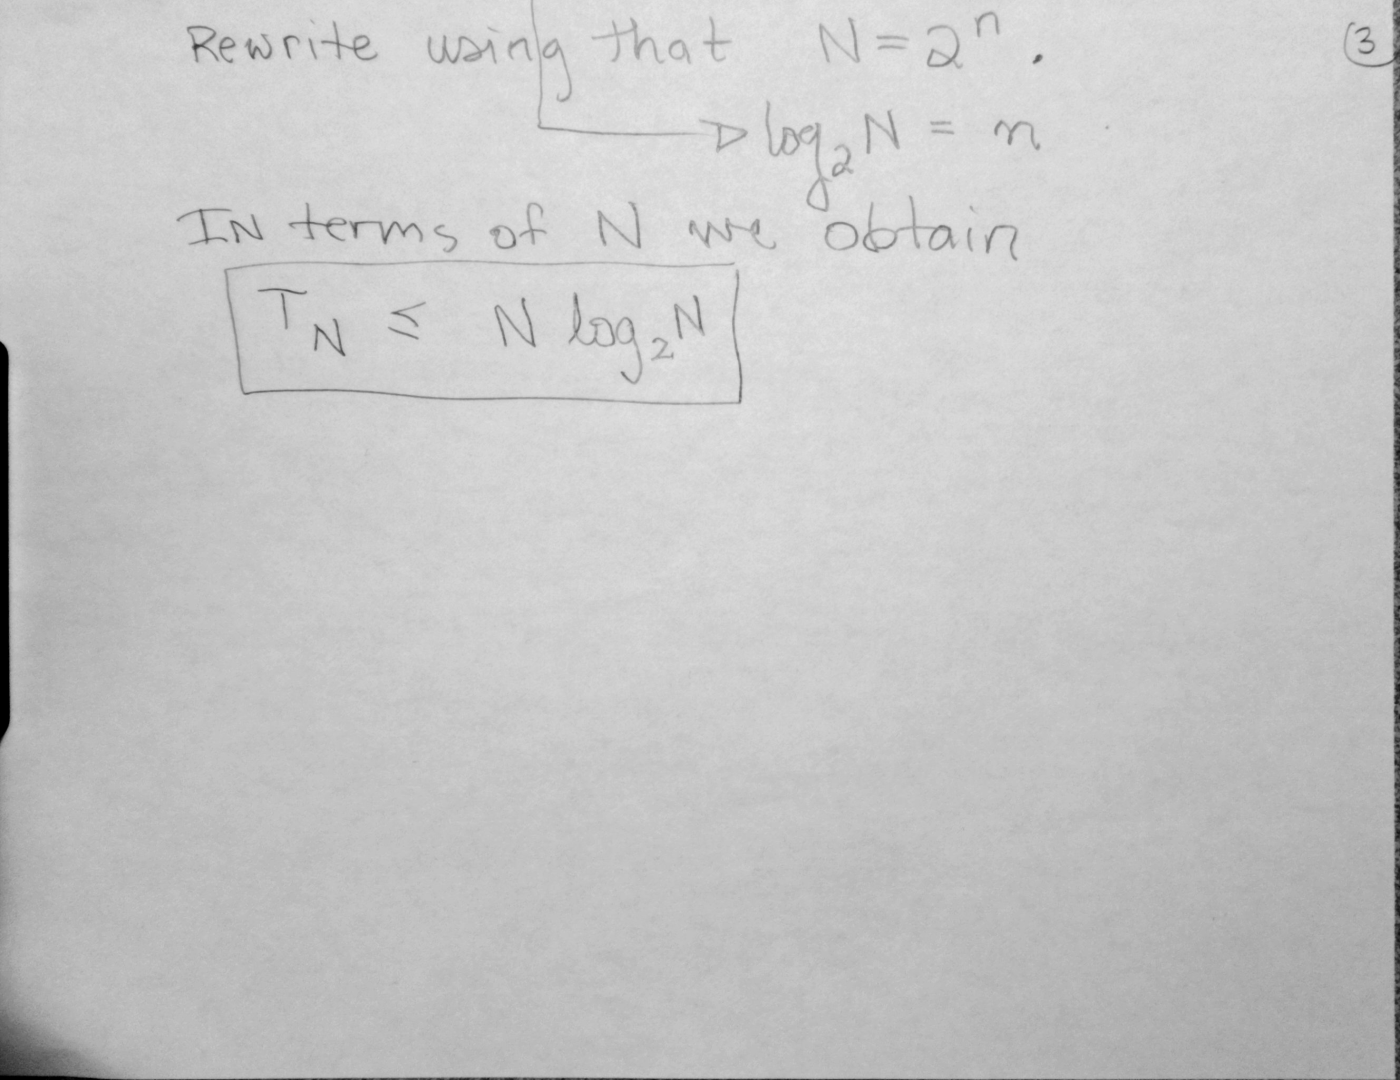 Rewrite using that N = 2ⁿ. ③
log₂ N = n
IN terms of N we obtain
T_N ≤ N log₂ N